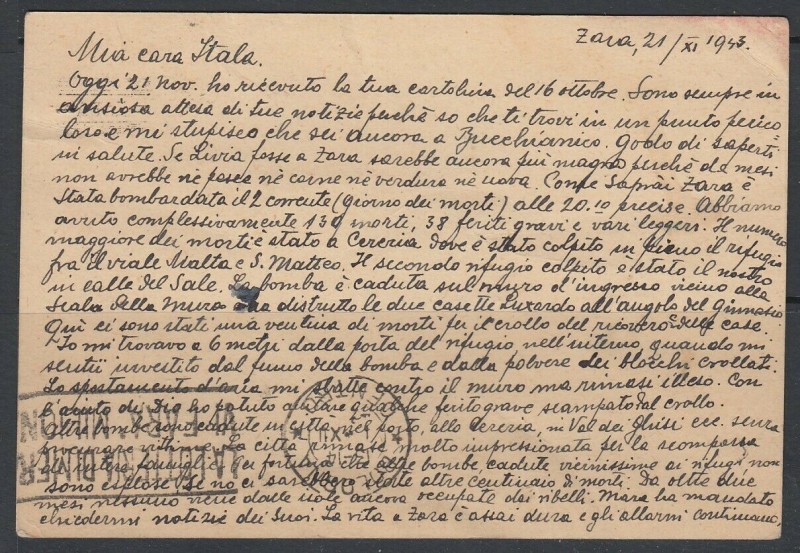 Zara, 21/XI 1943.
Mia cara Itala.
Oggi 21 nov. ho ricevuto la tua cartolina del 16 ottobre. Sono sempre in
ansiosa attesa di tue notizie perchè so che ti trovi in un punto perico
loso e mi stupisco che sei ancora a Bucchianico. Godo di saperti
in salute. Se Livia fosse a Zara sarebbe ancora più magra perchè da mesi
non avrebbe nè pesce nè carne nè verdura nè uova. Come saprai Zara è
stata bombardata il 2 corrente (giorno dei morti) alle 20.10 precise. Abbiamo
avuto complessivamente 130 morti, 38 feriti gravi e vari leggeri. Il numero
maggiore dei morti è stato a Cereria dove è stato colpito in pieno il rifugio
fra il viale Malta e S. Matteo. Il secondo rifugio colpito è stato il nostro
in calle del Sale. La bomba è caduta sul muro d'ingresso vicino alla
Scala della Mura ha distrutto le due casette Luxardo all'angolo del Ginnasio
Qui ci sono stati una ventina di morti per il crollo del ricovero e delle case.
Io mi trovavo a 6 metri dalla porta del rifugio nell'interno, quando mi
sentii investito dal fumo della bomba e dalla polvere dei blocchi crollati.
Lo spostamento d'aria mi sbattè contro il muro ma rimasi illeso. Con
l'aiuto di Dio ho potuto aiutare qualche ferito grave scampato dal crollo.
Altre bombe sono cadute in città nel porto, alla Cereria, in Val dei Ghisi ecc. senza
procurare vittime. La città rimase molto impressionata per la scomparsa
di intere famiglie. Per fortuna che altre bombe, cadute vicinissime ai rifugi non
sono esplose se no ci sarebbero state altre centinaio di morti. Da oltre due
mesi nessuno viene dalle isole ancora occupate dai ribelli. Mara ha mandato
chiedermi notizie dei suoi. La vita a Zara è assai dura e gli allarmi continuano,